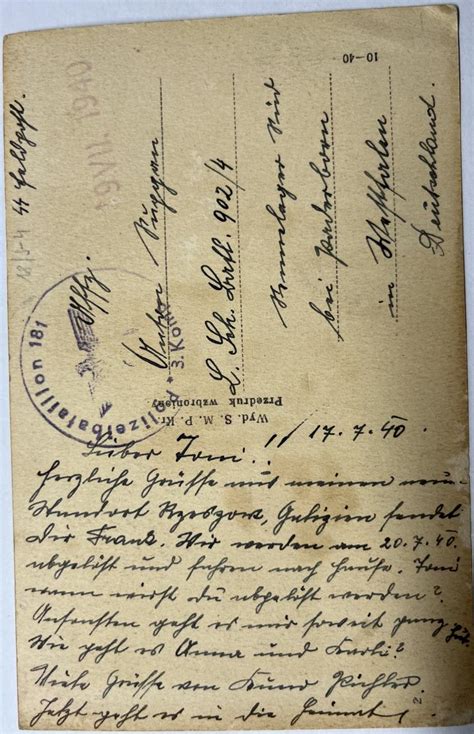 18/5-4 Feldpost.
19. VIII. 1940
Polizeibataillon 181 * 3. Komp
Uffz.
Anton
L. Sch. Batl. 902/4
Sennelager Süd
bei Paderborn
in Westfalen
Deutschland.
10-40
Wyd. S. M. P. Kr
Przedruk wzbroniony
17.7.40.
Lieber Toni!
Herzliche Grüsse aus meinen neuen
Standort Rzeszow, Galizien sendet
Dir Frank. Wir werden am 20.7.40.
abgelöst und fahren nach Hause. Toni
wann wirst du abgelöst werden?
Ansonsten geht es mir soweit ganz gut.
Wie geht es Anna und Karli?
Viele Grüsse von Kuno Pichler.
Jetzt geht es in die Heimat